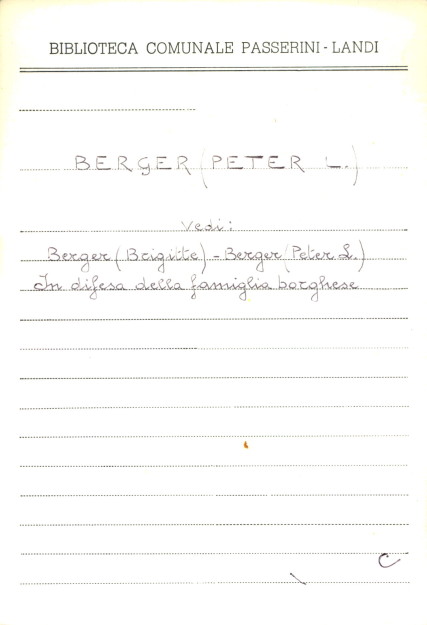 BIBLIOTECA COMUNALE PASSERINI - LANDI
BERGER (PETER L.)
Vedi:
Berger (Brigitte) - Berger (Peter L.)
In difesa della famiglia borghese
C